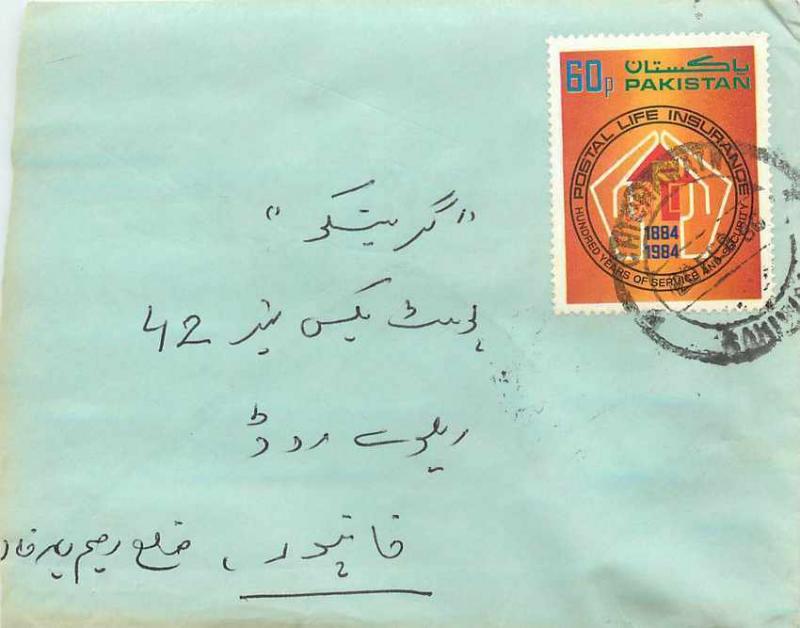 60p پاکستان
PAKISTAN
POSTAL LIFE INSURANCE
HUNDRED YEARS OF SERVICE AND SECURITY
1884
1984
"اگریٹکو"
پوسٹ بکس نمبر 42
ریلوے روڈ
خانپور، ضلع رحیم یار خان